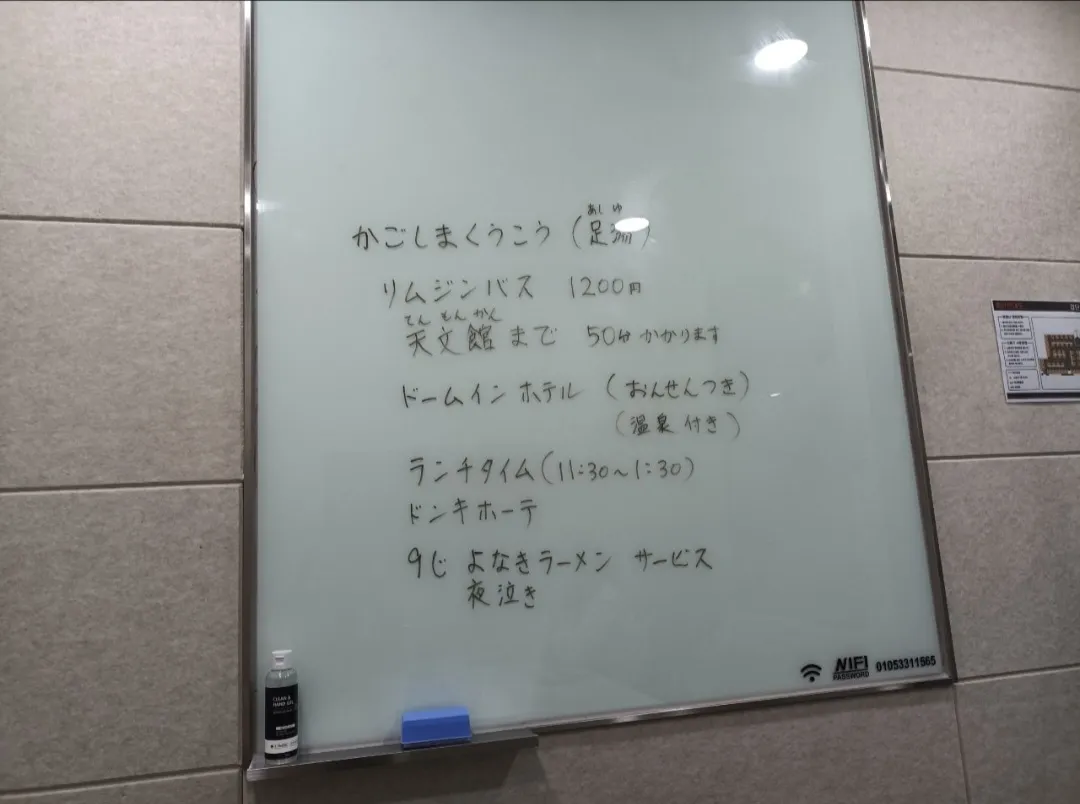 あし ゆ
かごしまくうこう (足湯)
リムジンバス 1200円
てん もん かん
天文館 まで 50分 かかります
ドームイン ホテル (おんせんつき)
(温泉 付き)
ランチタイム (11:30~1:30)
ドンキホーテ
9じ よなきラーメン サービス
夜泣き
WIFI
PASSWORD
01053311565
CLEAN &
HAND GEL